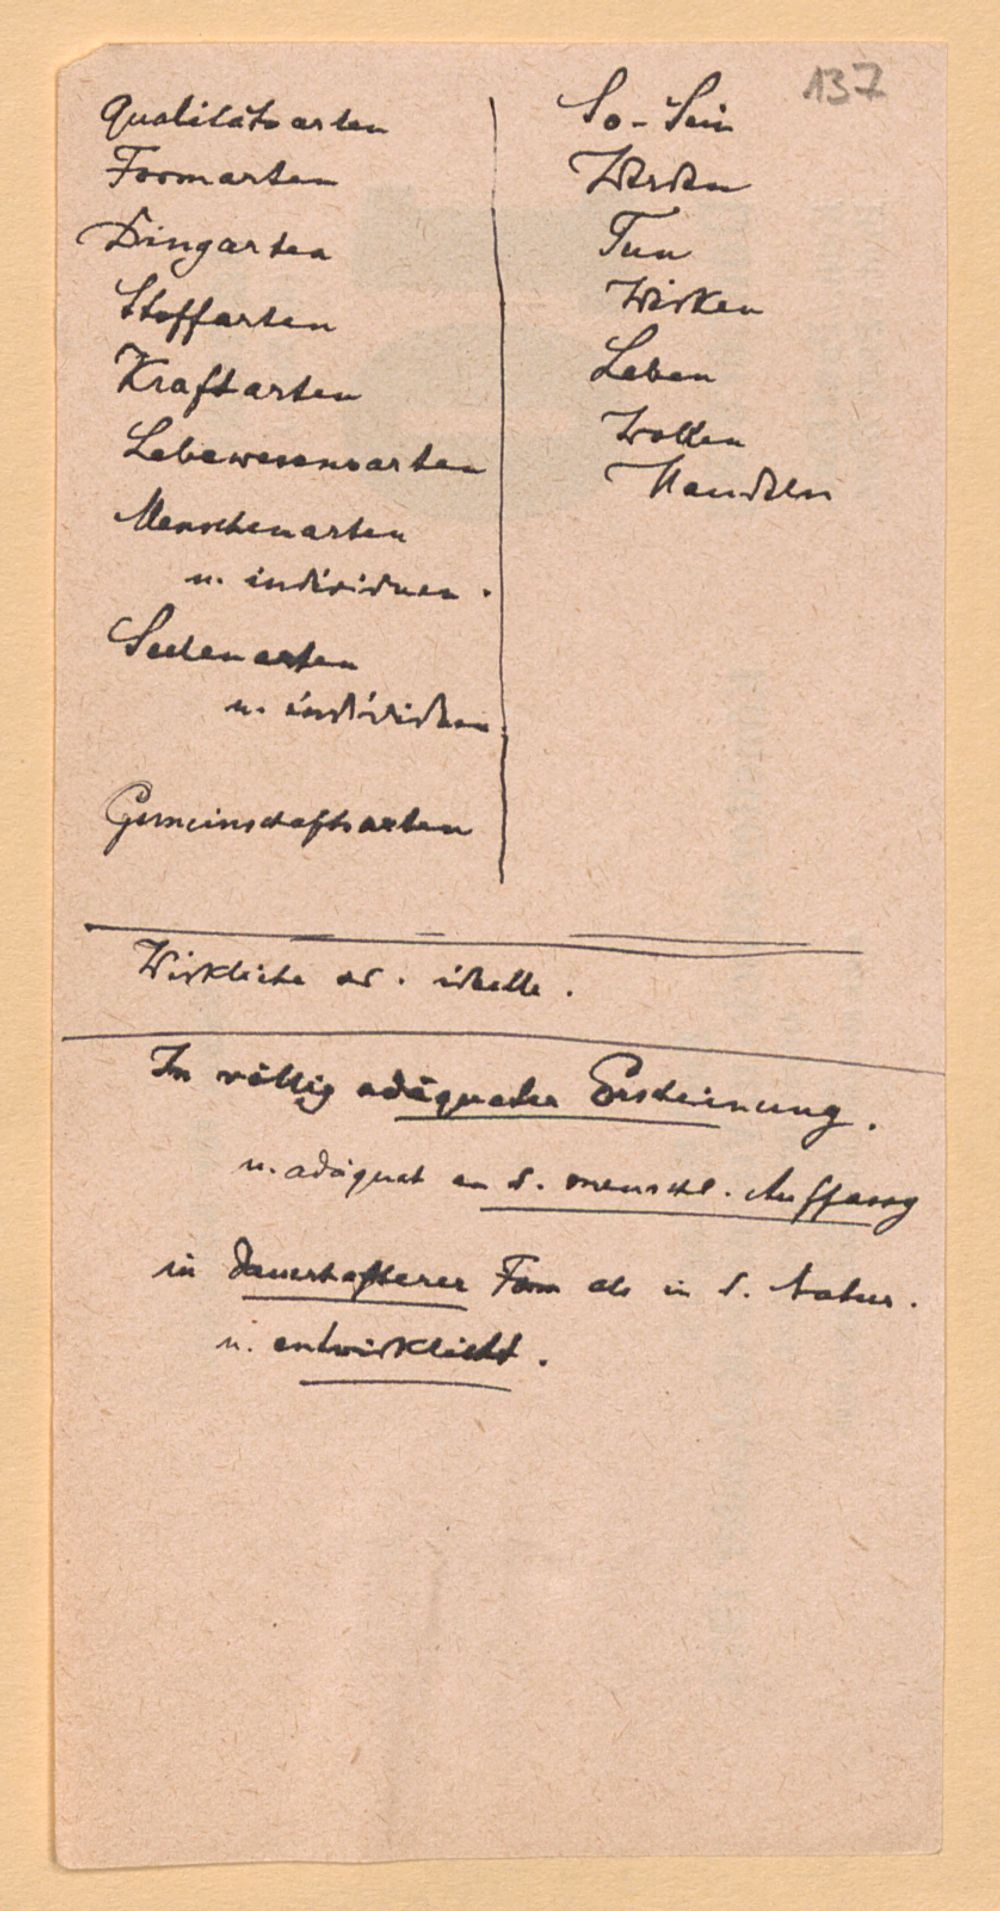 137
Qualitätsarten
Formarten
Dingarten
Stoffarten
Kraftarten
Lebewesensarten
Menschenarten
u. individuen.
Seelenarten
u. individuen.
Gemeinschaftsarten
So-Sein
Werden
Tun
Wirken
Leben
Wollen
Handeln
Wirkliche od. ideelle.
In völlig adäquater Erscheinung.
u. adäquat an d. menschl. Auffassg
in dauerhafterer Form als in d. Natur.
u. entwirklicht.